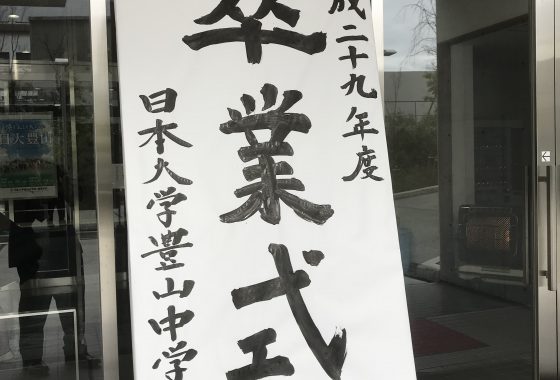 成二十九年度
卒業式
日本大学豊山中学